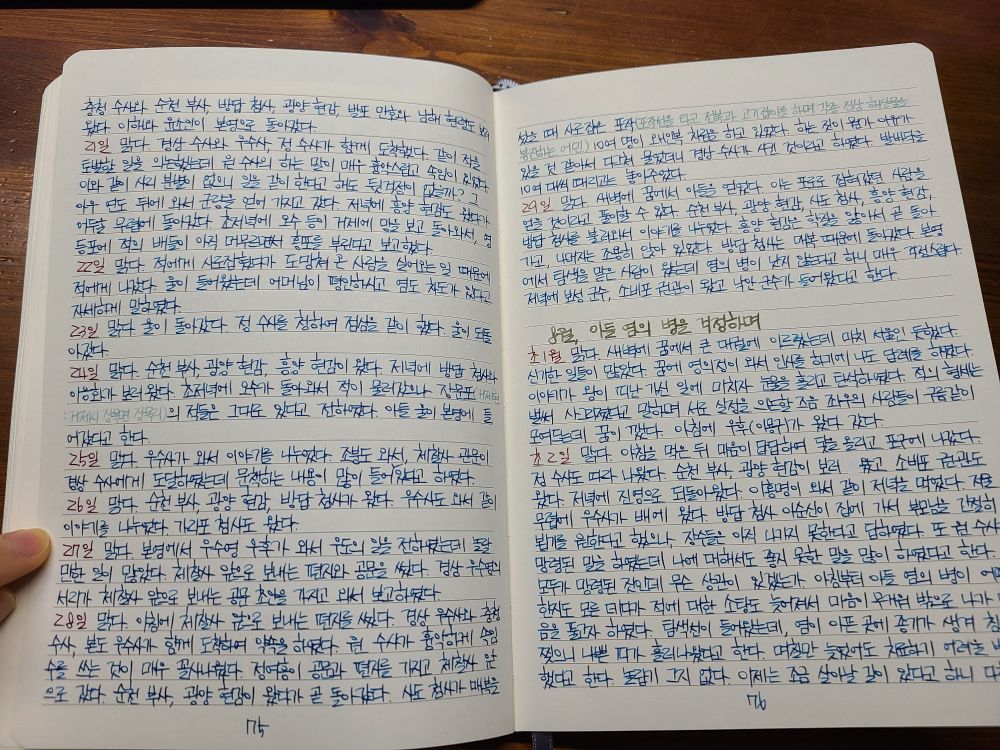 충청 수사와 순천 부사, 방답 첨사, 광양 현감, 발포 만호와 남해 현령도
왔다. 이해와 윤소인이 본영으로 돌아갔다.
21일 맑다. 경상 수사와 우수사, 정 수사가 함께 도착했다. 같이 적을
토벌할 일을 의논했는데 원 수사의 하는 말이 매우 흉악스럽고 속임이 있었다.
이와 같이 사리 분별이 없으니 일을 같이 한다고 해도 뒷걱정이 없을까? 그
아우 연도 뒤에 와서 군량을 얻어 가지고 갔다. 저녁에 흥양 현감도 왔다가
어두울 무렵에 돌아갔다. 초저녁에 오수 등이 거제에 망을 보고 돌아와서, 영
등포에 적의 배들이 아직 머무르면서 횡포를 부린다고 보고했다.
22일 맑다. 적에게 사로잡혔다가 도망쳐 온 사람을 실어오는 일 때문에
적에게 나갔다. 울이 들어왔는데 어머님이 평안하시고 염도 차도가 있다고
자세하게 말하였다.
23일 맑다. 울이 돌아갔다. 정 수사를 청하여 점심을 같이 했다. 울이 도로
아갔다.
24일 맑다. 순천 부사, 광양 현감, 흥양 현감이 왔다. 저녁에 방답 첨사와
이응화가 보러 왔다. 초저녁에 오수가 돌아와서 적이 물러갔으나 장문포
:거제시 장목면 장목리)의 적들은 그대로 있다고 전하였다. 아들 울이 본영에 들
어갔다고 한다.
25일 맑다. 우수사가 와서 이야기를 나누었다. 조붕도 와서, 체찰사 관문이
영상 수사에게 도달하였는데 문책하는 내용이 많이 들어있다고 하였다.
26일 맑다. 순천 부사, 광양 현감, 방답 첨사가 왔다. 우수사도 와서 같이
이야기를 나누었다. 가리포 첨사도 왔다.
27일 맑다. 본영에서 우수영 우후가 와서 우도의 일을 전하였는데 놀랄
만한 일이 많았다. 체찰사 앞으로 보내는 편지와 공문을 썼다. 경상 우수영의
서리가 체찰사 앞으로 보내는 공문 초안을 가지고 와서 보고하였다.
28일 맑다. 아침에 체찰사 앞으로 보내는 편지를 썼다. 경상 우수사와 충청
수사, 본도 우수사가 함께 도착하여 약속을 하였다. 원 수사가 흉악하게 속임
수를 쓰는 것이 매우 꼴사나웠다. 정여흥이 공문과 편지를 가지고 체찰사 앞
으로 갔다. 순천 부사, 광양 현감이 왔다가 곧 돌아갔다. 사도 첨사가 매복을
75
섰을 때 사로잡은 포작(포작선을 타고 전복과 고기잡이를 하며 각종 진상 해산물을
봉진하는 어민) 10여 명이 왜인복 차림을 하고 있었다. 하는 짓이 뭔가 이유가
있을 것 같아서 다그쳐 물었더니 경상 수사가 시킨 것이라고 하였다. 발바닥을
10여 대씩 때리고는 놓아주었다.
29일 맑다. 새벽에 꿈에서 아들을 얻었다. 이는 포로로 잡혀갔던 사람을
얻을 것이라고 풀이할 수 있다. 순천 부사, 광양 현감, 사도 첨사, 흥양 현감,
방답 첨사를 불러와서 이야기를 나누었다. 흥양 현감은 학질을 앓아서 곧 돌아
가고, 나머지는 조용히 앉아 있었다. 방답 첨사는 대복 때문에 돌아갔다. 본영
에서 탐색을 맡은 사람이 왔는데 염의 병이 낫지 않는다고 하니 매우 걱정스럽다.
저녁에 보성 군수, 소비포 권관이 왔고 낙안 군수가 들어왔다고 한다.
8월, 아들 염의 병을 걱정하며
초1일 맑다. 새벽에 꿈에서 큰 대궐에 이르렀는데, 마치 서울인 듯했다.
신기한 일들이 많았다. 꿈에 영의정이 와서 인사를 하기에 나도 답례를 하였다.
이야기가 왕이 떠난 가신 일에 미치자 눈물을 흘리고 탄식하였다. 적의 형세는
벌써 사그라졌다고 말하며 서로 실정을 의논할 즈음 좌우의 사람들이 구름같이
모여드는데, 꿈이 깼다. 아침에 우후(이몽구)가 왔다 갔다.
초2일 맑다. 아침을 먹은 뒤 마음이 답답하여 닻을 올리고 포구에 나갔다.
정 수사도 따라 나왔다. 순천 부사, 광양 현감이 보러 왔고 소비포 권관도
왔다. 저녁에 진영으로 되돌아왔다. 이홍명이 와서 같이 저녁을 먹었다. 저문
무렵에 우수사가 배에 왔다. 방답 첨사 이순신이 집에 가서 부모를 간절히
뵙기를 원하다고 했으나, 장수들은 아직 나가지 못한다고 답하였다. 또 원 수사가
망령된 말을 하였는데 나에 대해서도 좋지 못한 말을 많이 하였다고 한다.
모두가 망령된 것인데 무슨 상관이 있겠는가 아침부터 아들 염의 병이 어떠
한지도 모른 데다가 적에 대한 소탕도 늦어져서 마음이 무거워 밖으로 나가
음을 풀고자 하였다. 탐색선이 들어왔는데, 염이 아픈 곳에 종기가 생겨 침
찢으니 나쁜 피가 흘러나왔다고 한다. 며칠만 늦었어도 치료하기 어려울
했다고 한다. 놀랍기 그지 없다. 이제는 조금 살아날 길이 있다고 하니
76